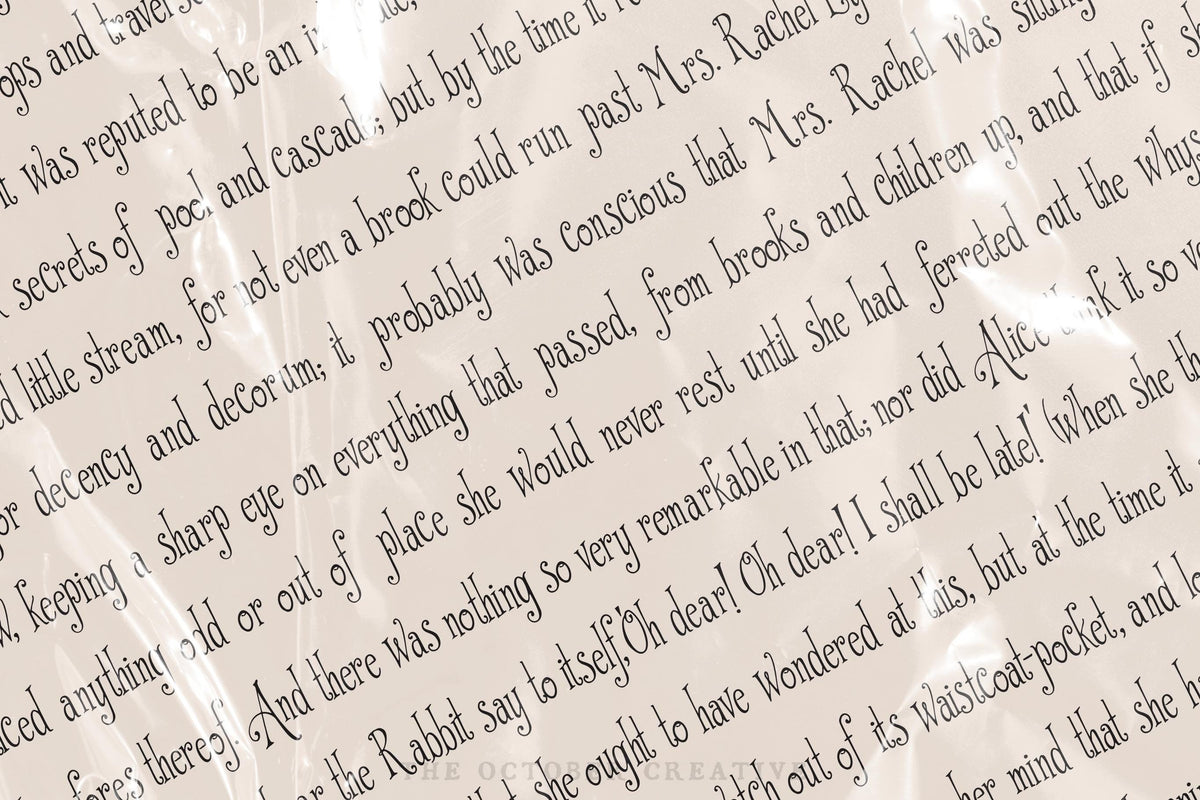 ops and travers
was reputed to be an
secrets of pool and cascade; but by the time it
little stream, for not even a brook could run past Mrs. Rachel Ly
or decency and decorum; it probably was conscious that Mrs. Rachel was sitting
w, keeping a sharp eye on everything that passed, from brooks and children up, and that if sh
iced anything odd or out of place she would never rest until she had ferreted out the whys
fores thereof. And there was nothing so very remarkable in that; nor did Alice think it so v
the Rabbit say to itself,'Oh dear! Oh dear! I shall be late!' (when she th
she ought to have wondered at this, but at the time it
tch out of its waistcoat-pocket, and lo
her mind that she h
THE OCTOBER CREATIVE